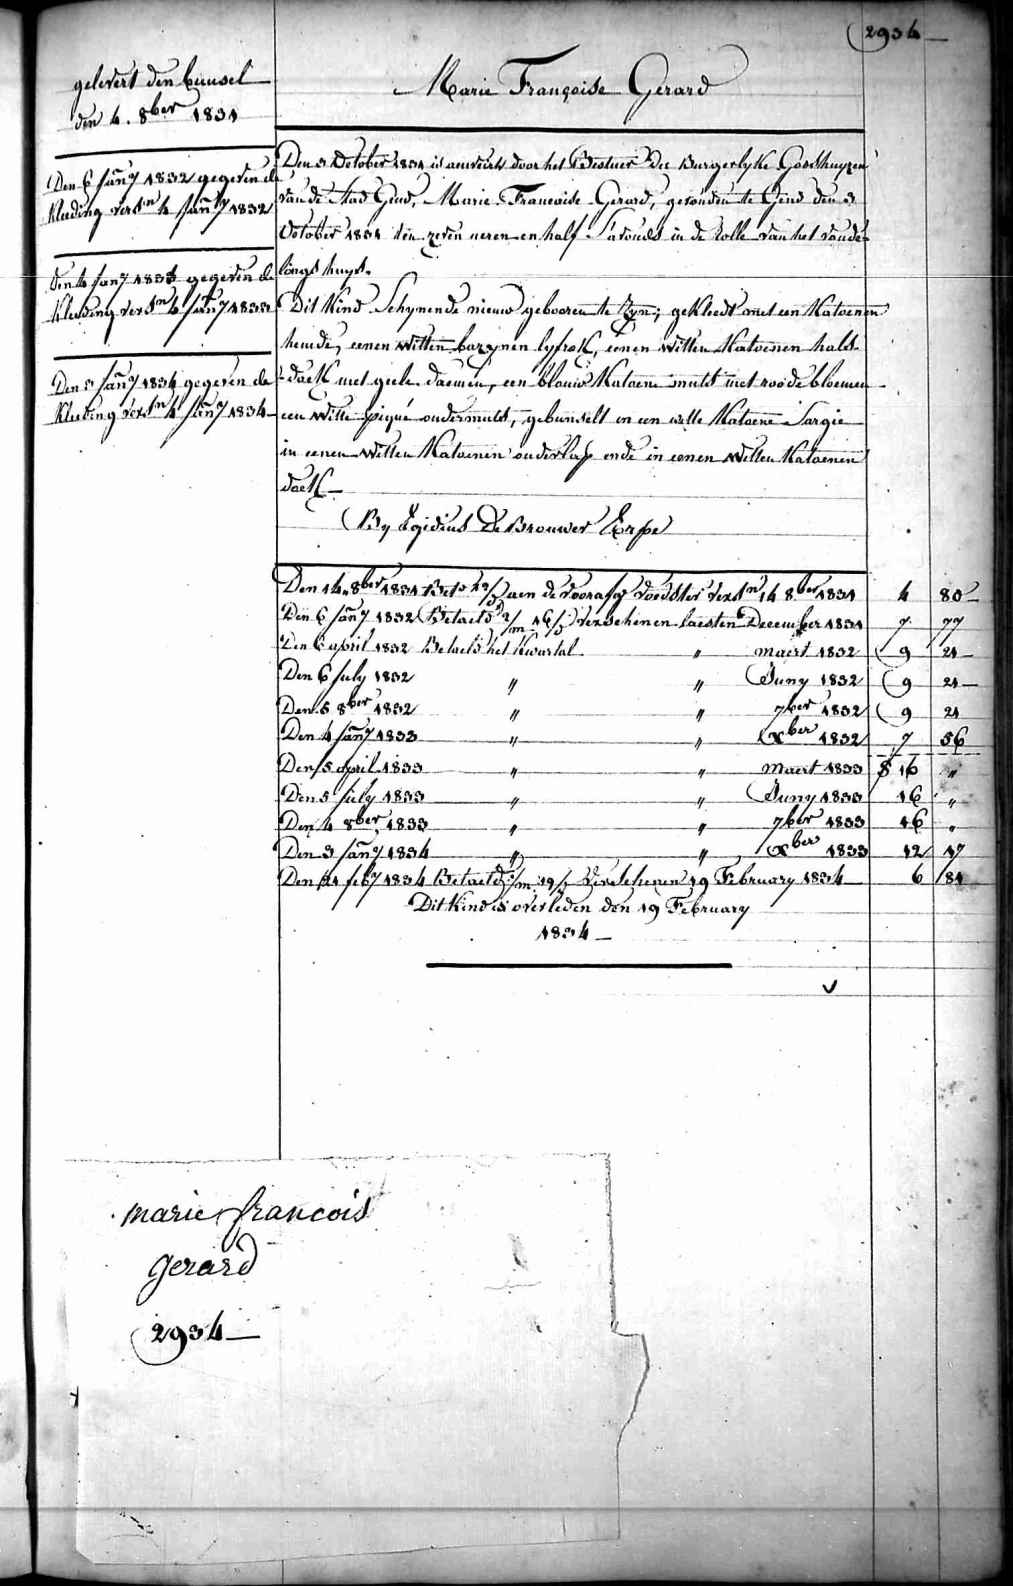 2934
gelevert den bunsel
den 4. 8ber 1831
Marie Françoise Gerard
Den 6 Jany 1832 gegeven de
Kleeding versn 4 Jany 1832
Den 4 Jany 1833 gegeven de
Kleeding versn 4 Jany 1833
Den 3 Jany 1834 gegeven de
Kleeding versn 4 Jany 1834
Den 3 October 1831 is aenveirt door het Bestuer der Burgerlyke Godshuyzen
van de Stad Gend, Marie Francoise Gerard, gevonden te Gend den 3
October 1831 ten zeven ueren en half S'avonds in de Rolle van het vonde-
lings huys.
Dit Kind Schynende nieuw gebooren te Zyn; gekleedt met een Katoenen
hemde, eenen witten bazynen lyfrok, eenen witten Katoenen hals-
doek met geele daemen, een blauw Katoene muts met roode bloemen
een witte piqué ondermuts, gebunselt in een witte Katoene Sargie
in eenen witten Katoenen onderlap ende in eenen witten Katoenen
doek
By Egidius De Brouwer Erpe
Den 14. 8ber 1831 aen de voorafg voedster versn 14 8ber 1831 4 80
Den 6 Jany 1832 Betaeld 2/m 16/d verschenen laesten December 1831 7 77
Den 6 april 1832 Betaeld het Kwartal " maert 1832 9 21
Den 6 July 1832 " " Juny 1832 9 21
Den 5 8ber 1832 " " 7ber 1832 9 21
Den 4 Jany 1833 " " Xber 1832 7 56
Den 5 april 1833 " " maert 1833 16 "
Den 5 July 1833 " " Juny 1833 16 "
Den 4 8ber 1833 " " 7ber 1833 16 "
Den 3 Jany 1834 " " Xber 1833 12 17
Den 21 feby 1834 Betaeld 1/m 19/d Verschenen 19 February 1834 6 81
Dit Kind is overleden den 19 February
1834
marie francois
gerard
2934